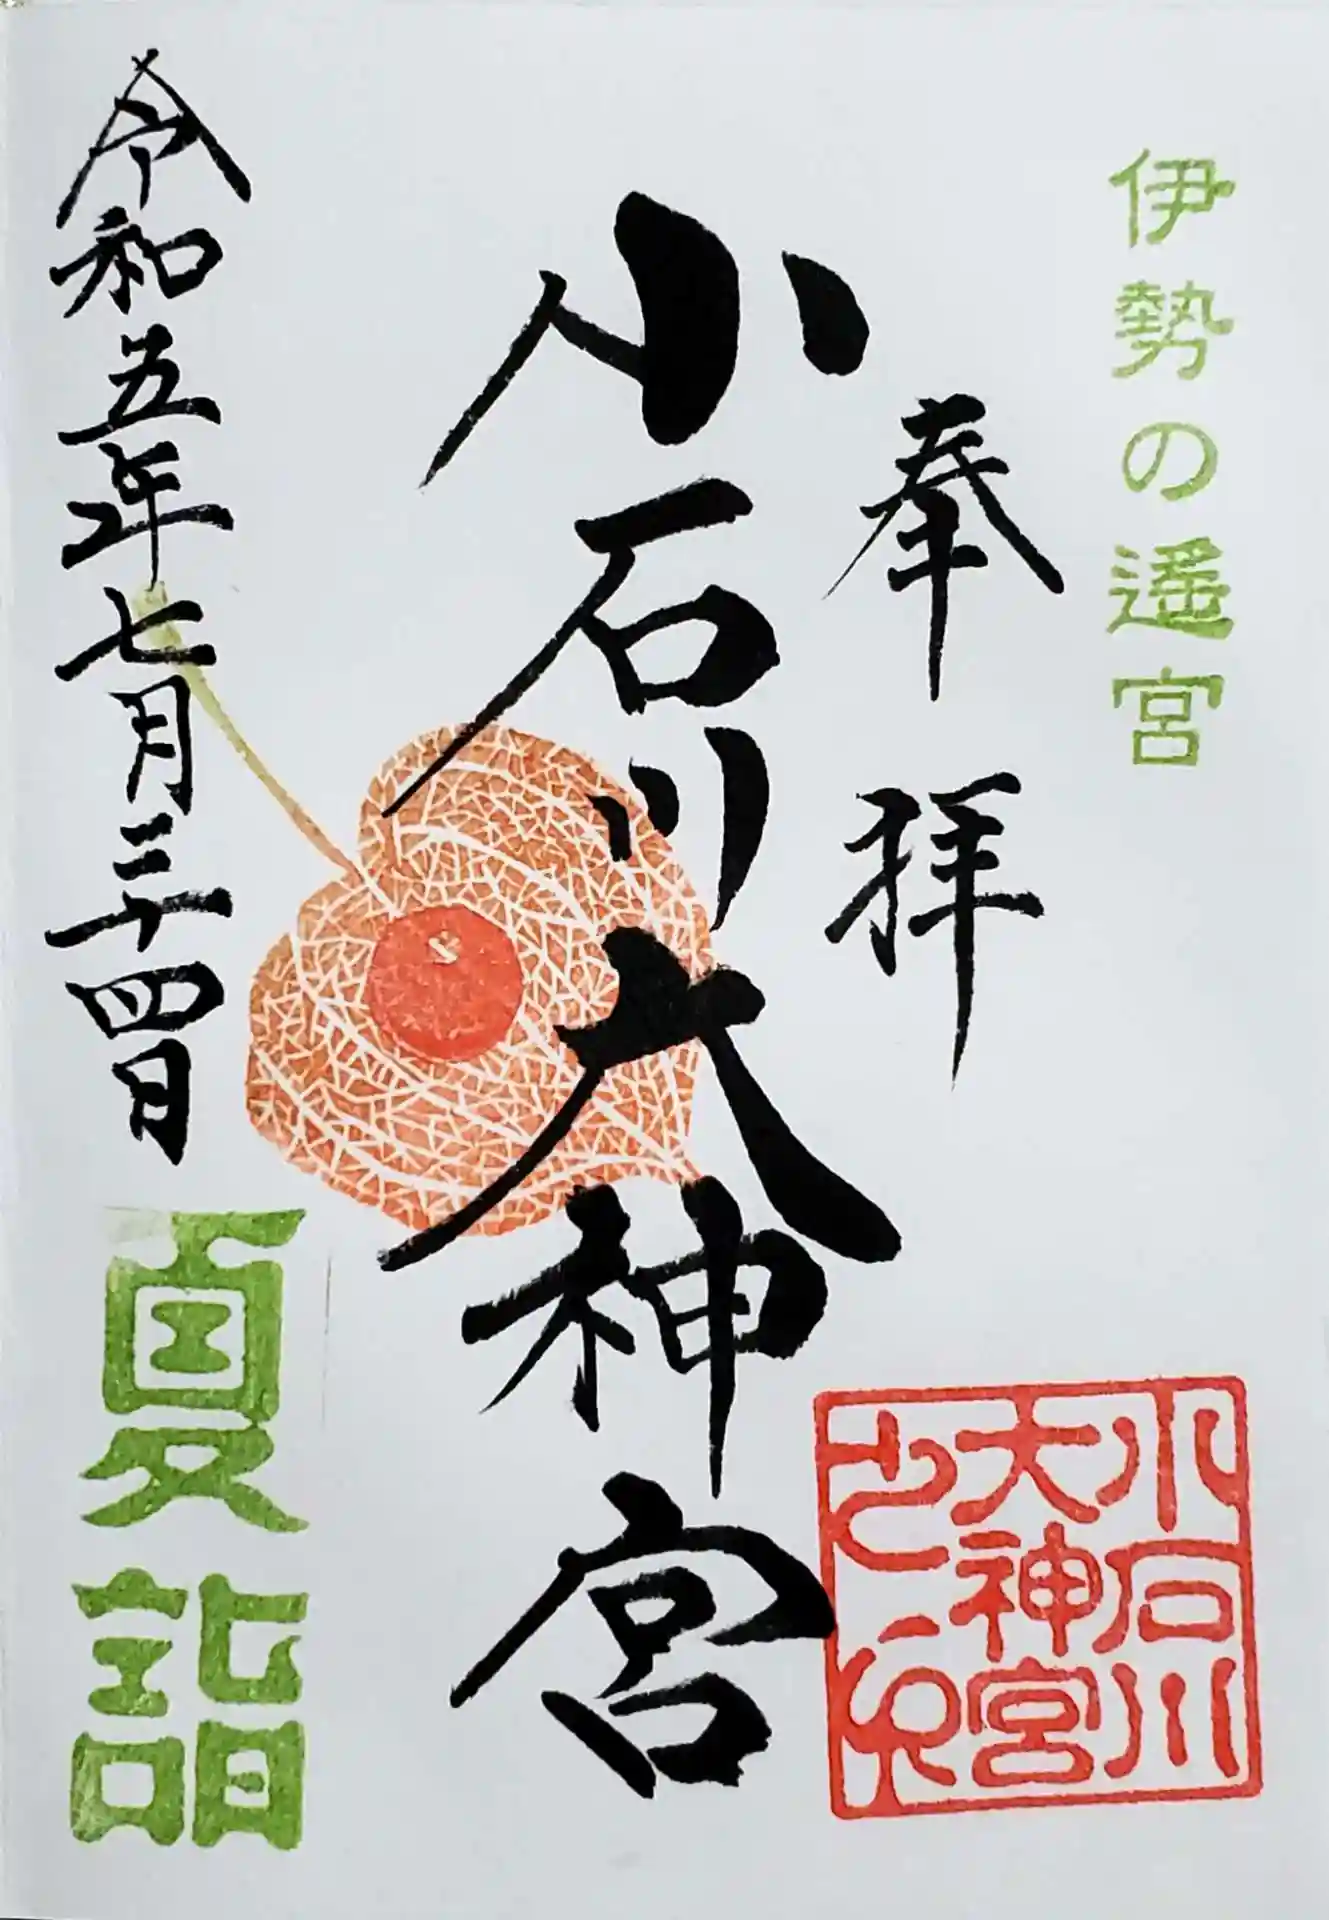 伊勢の遙宮
奉拝
小石川大神宮
令和五年七月二十四日
夏詣
小石川
大神宮
之印